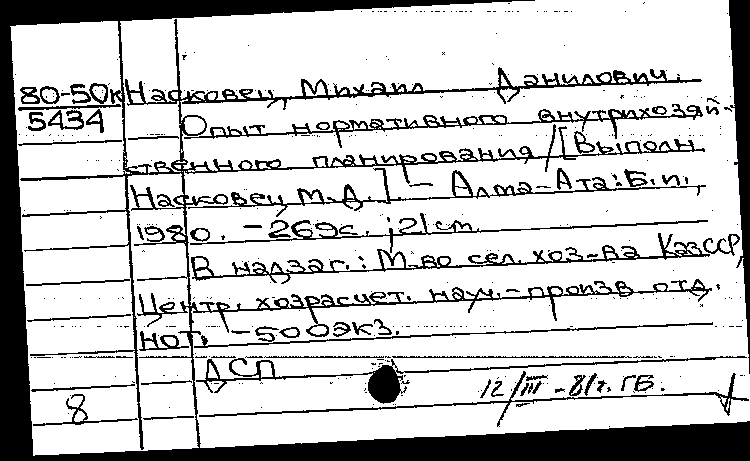 80-50к Насковец, Михаил Данилович.
5434 Опыт нормативного внутрихозяй-
ственного планирования / [Выполн.
Насковец М.Д.]. - Алма-Ата: Б.и.,
1980. - 269с. ; 21 см.
В надзаг.: М-во сел. хоз-ва КазССР,
Центр. хозрасчет. науч.-произв отд.
НОТ. - 500экз.
ДСП
8 12/III-81г. ГБ.